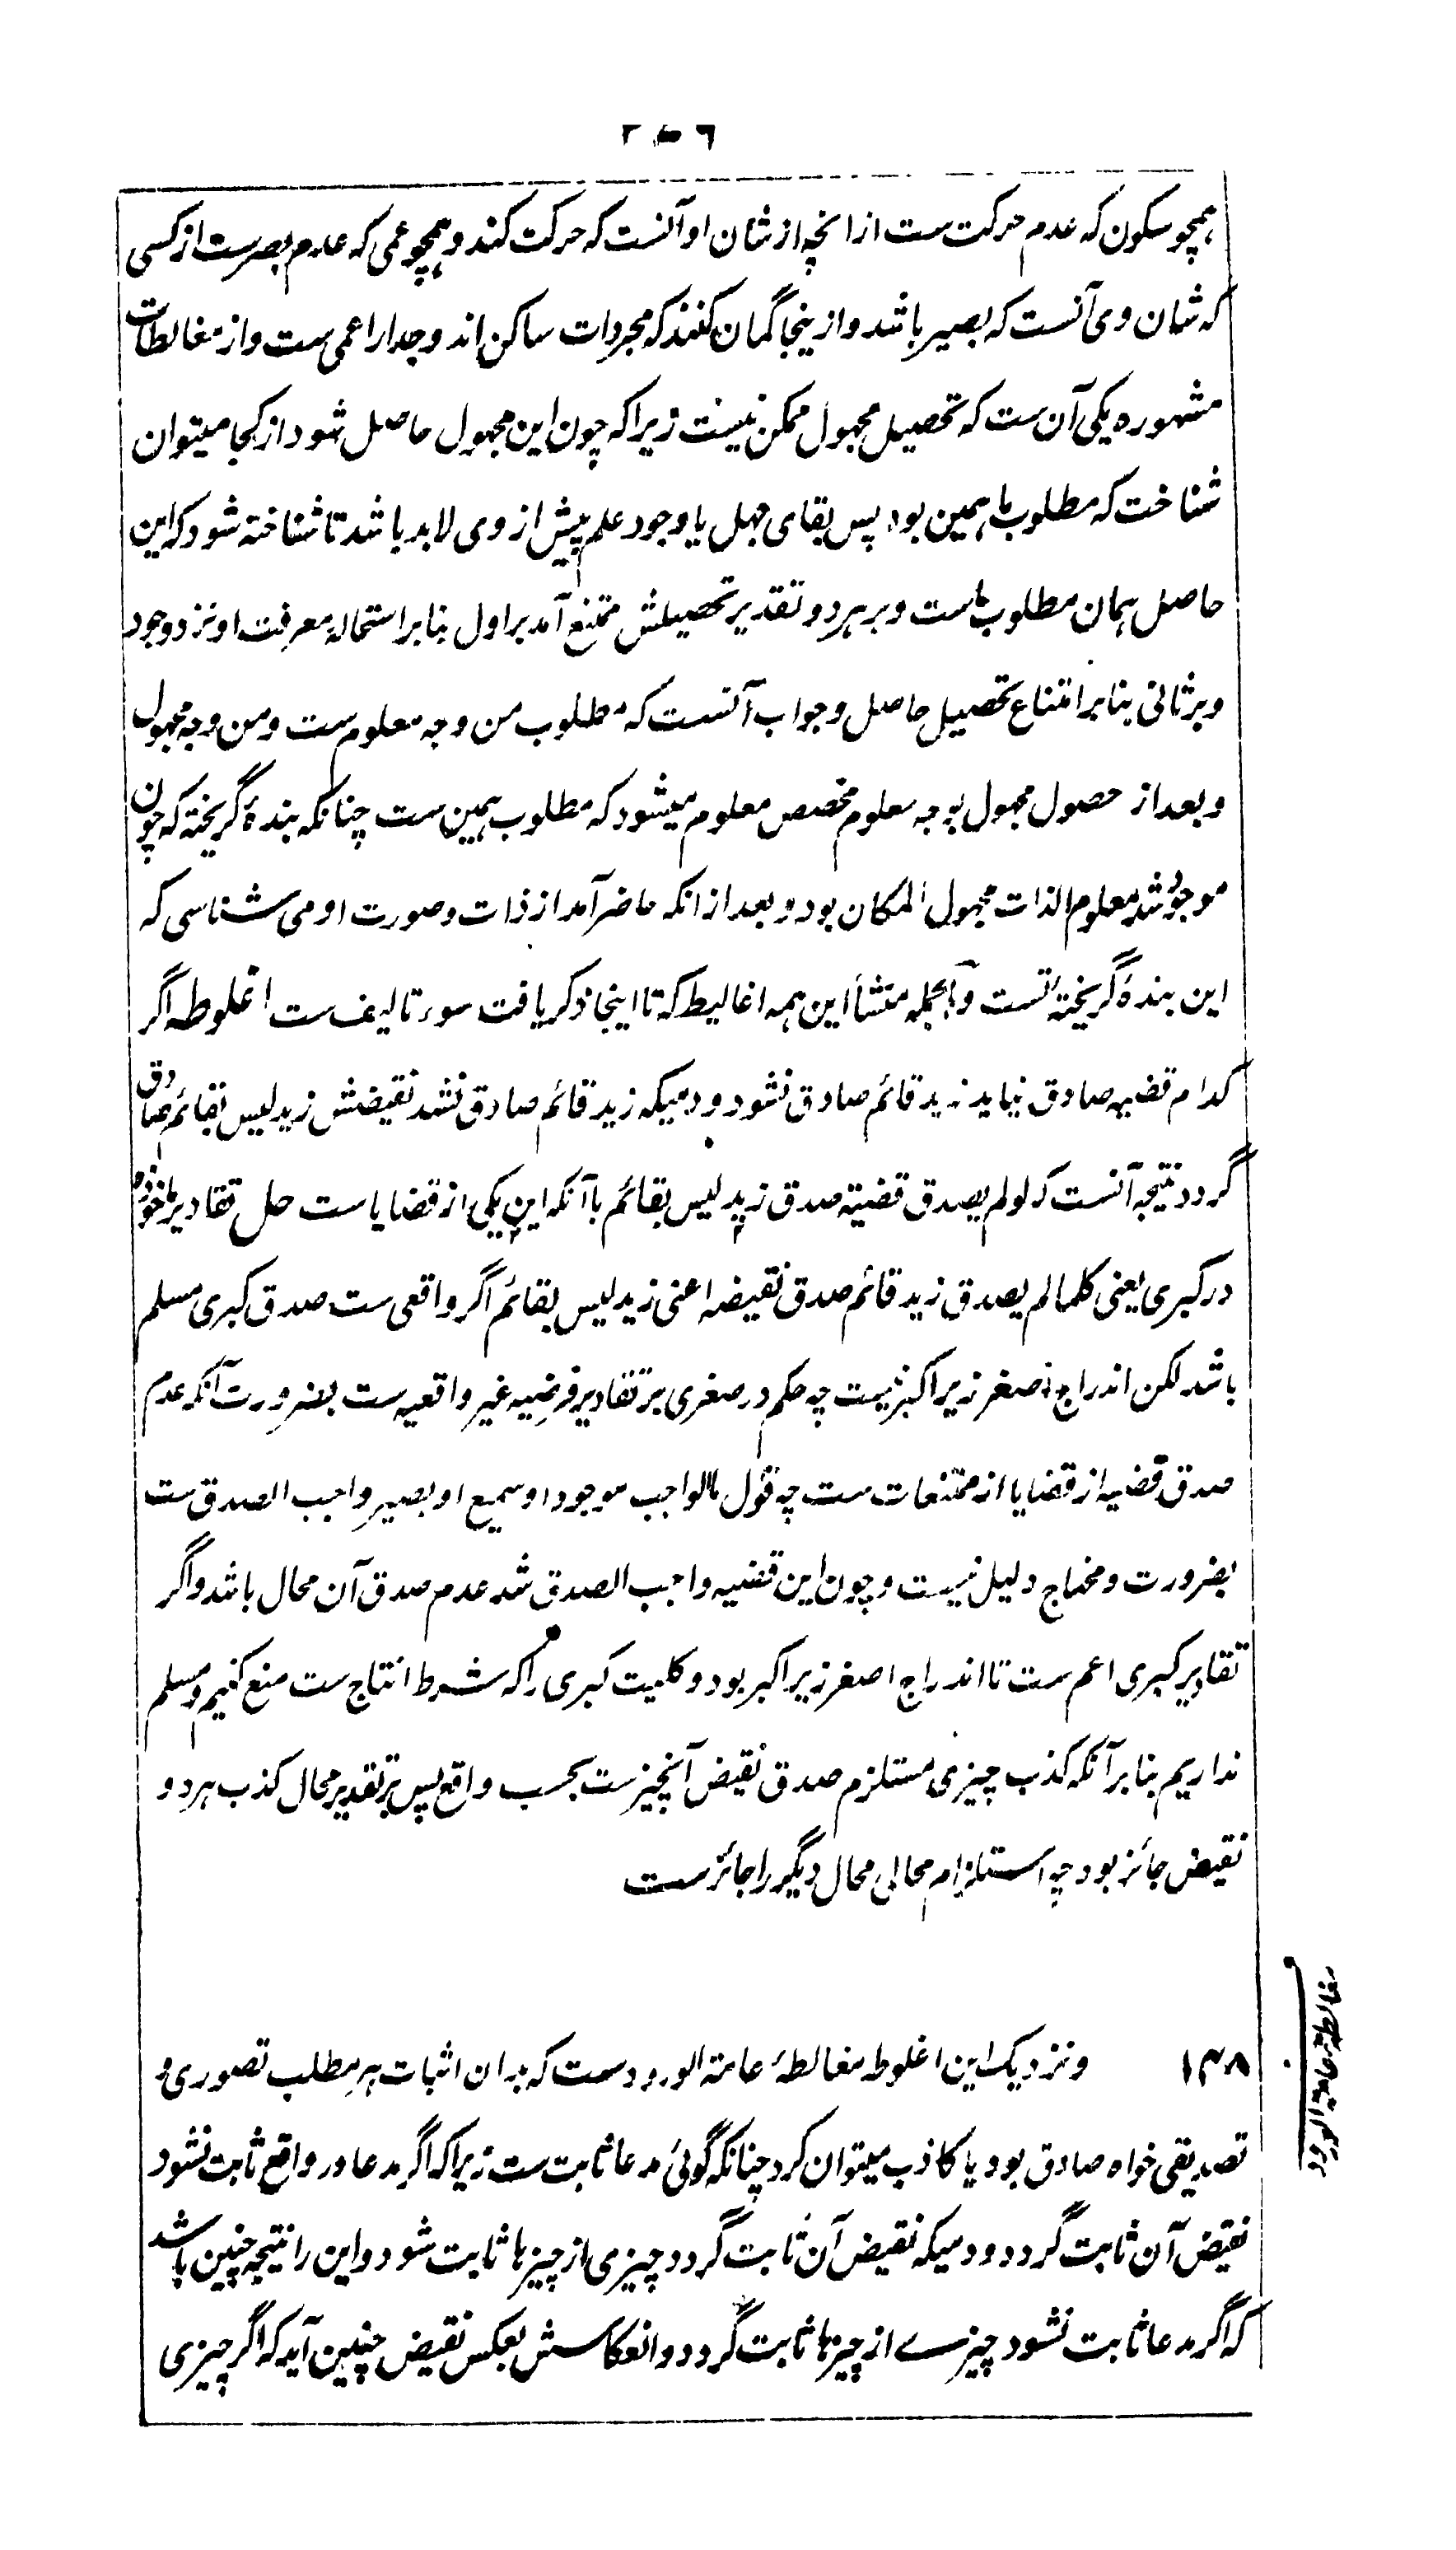 ۲۵۶
همچو سکون که عدم حرکت ست از انچه از شان او آنست که حرکت کند و همچو عمی که عدم بصرست از کسی
که شان وی آنست که بصیر باشد و ازینجا گمان کنند که مجردات ساکن اند و جدار اعمی ست و از مغالطات
مشهوره یکی آن ست که تحصیل مجهول ممکن نیست زیرا که چون این مجهول حاصل شود از کجا میتوان
شناخت که مطلوب ما همین بود پس بقای جهل یا وجود علم پیش از وی لابد باشد تا شناخته شود که این
حاصل همان مطلوب ماست و بر هر دو تقدیر تحصیلش ممتنع آمد بر اول بنابر استحالهٔ معرفت او نزد وجود
و بر ثانی بنابر امتناع تحصیل حاصل و جواب آنست که مطلوب من وجه معلوم ست و من وجه مجهول
و بعد از حصول مجهول بوجه معلوم مخصص معلوم میشود که مطلوب همین ست چنانکه بندهٔ گریخته که چون
موجود شد معلوم الذات مجهول المکان بود و بعد از انکه حاضر آمد از ذات و صورت او می شناسی که
این بندهٔ گریختهٔ تست و بالجمله منشأ این همه اغالیط که تا اینجا ذکر یافت سوء تالیف ست اغلوطه اگر
کدام قضیه صادق نیاید زید قائم صادق نشود و دمیکه زید قائم صادق نشد نقیضش زید لیس بقائم صادق
گردد نتیجه آنست که لو لم یصدق قضیة صدق زید لیس بقائم با آنکه این یکی از قضایاست حل تقادیر ماخوذه
در کبری یعنی کلما لم یصدق زید قائم صدق نقیضه اعنی زید لیس بقائم اگر واقعی ست صدق کبری مسلم
باشد لکن اندراج اصغر زیر اکبر نیست چه حکم در صغری بر تقادیر فرضیه غیر واقعیه ست بضرورت آنکه عدم
صدق قضیه از قضایا از ممتنعات ست چه قول ما الواجب موجود او سمیع او بصیر واجب الصدق ست
بضرورت و محتاج دلیل نیست و چون این قضیه واجب الصدق شد عدم صدق آن محال باشد و اگر
تقادیر کبری اعم ست تا اندراج اصغر زیر اکبر بود و کلیت کبری را که شرط انتاج ست منع کنیم و مسلم
نداریم بنابر آنکه کذب چیزی مستلزم صدق نقیض آنچیز ست بحسب واقع پس بر تقدیر محال کذب هر دو
نقیض جائز بود چه استلزام محالی محال دیگر را جائز ست
۱۳۸ و نزدیک این اغلوطه مغالطهٔ عامة الورود ست که بدان اثبات هر مطلب تصوری و
تصدیقی خواه صادق بود یا کاذب میتوان کرد چنانکه گوئی مدعا ثابت ست زیرا که اگر مدعا در واقع ثابت نشود
نقیض آن ثابت گردد و دمیکه نقیض آن ثابت گردد چیزی از چیزها ثابت شود و این را نتیجه چنین باشد
که اگر مدعا ثابت نشود چیزے از چیزها ثابت گردد و انعکاسش بعکس نقیض چنین آید که اگر چیزی
مغالطهٔ عامة الورود